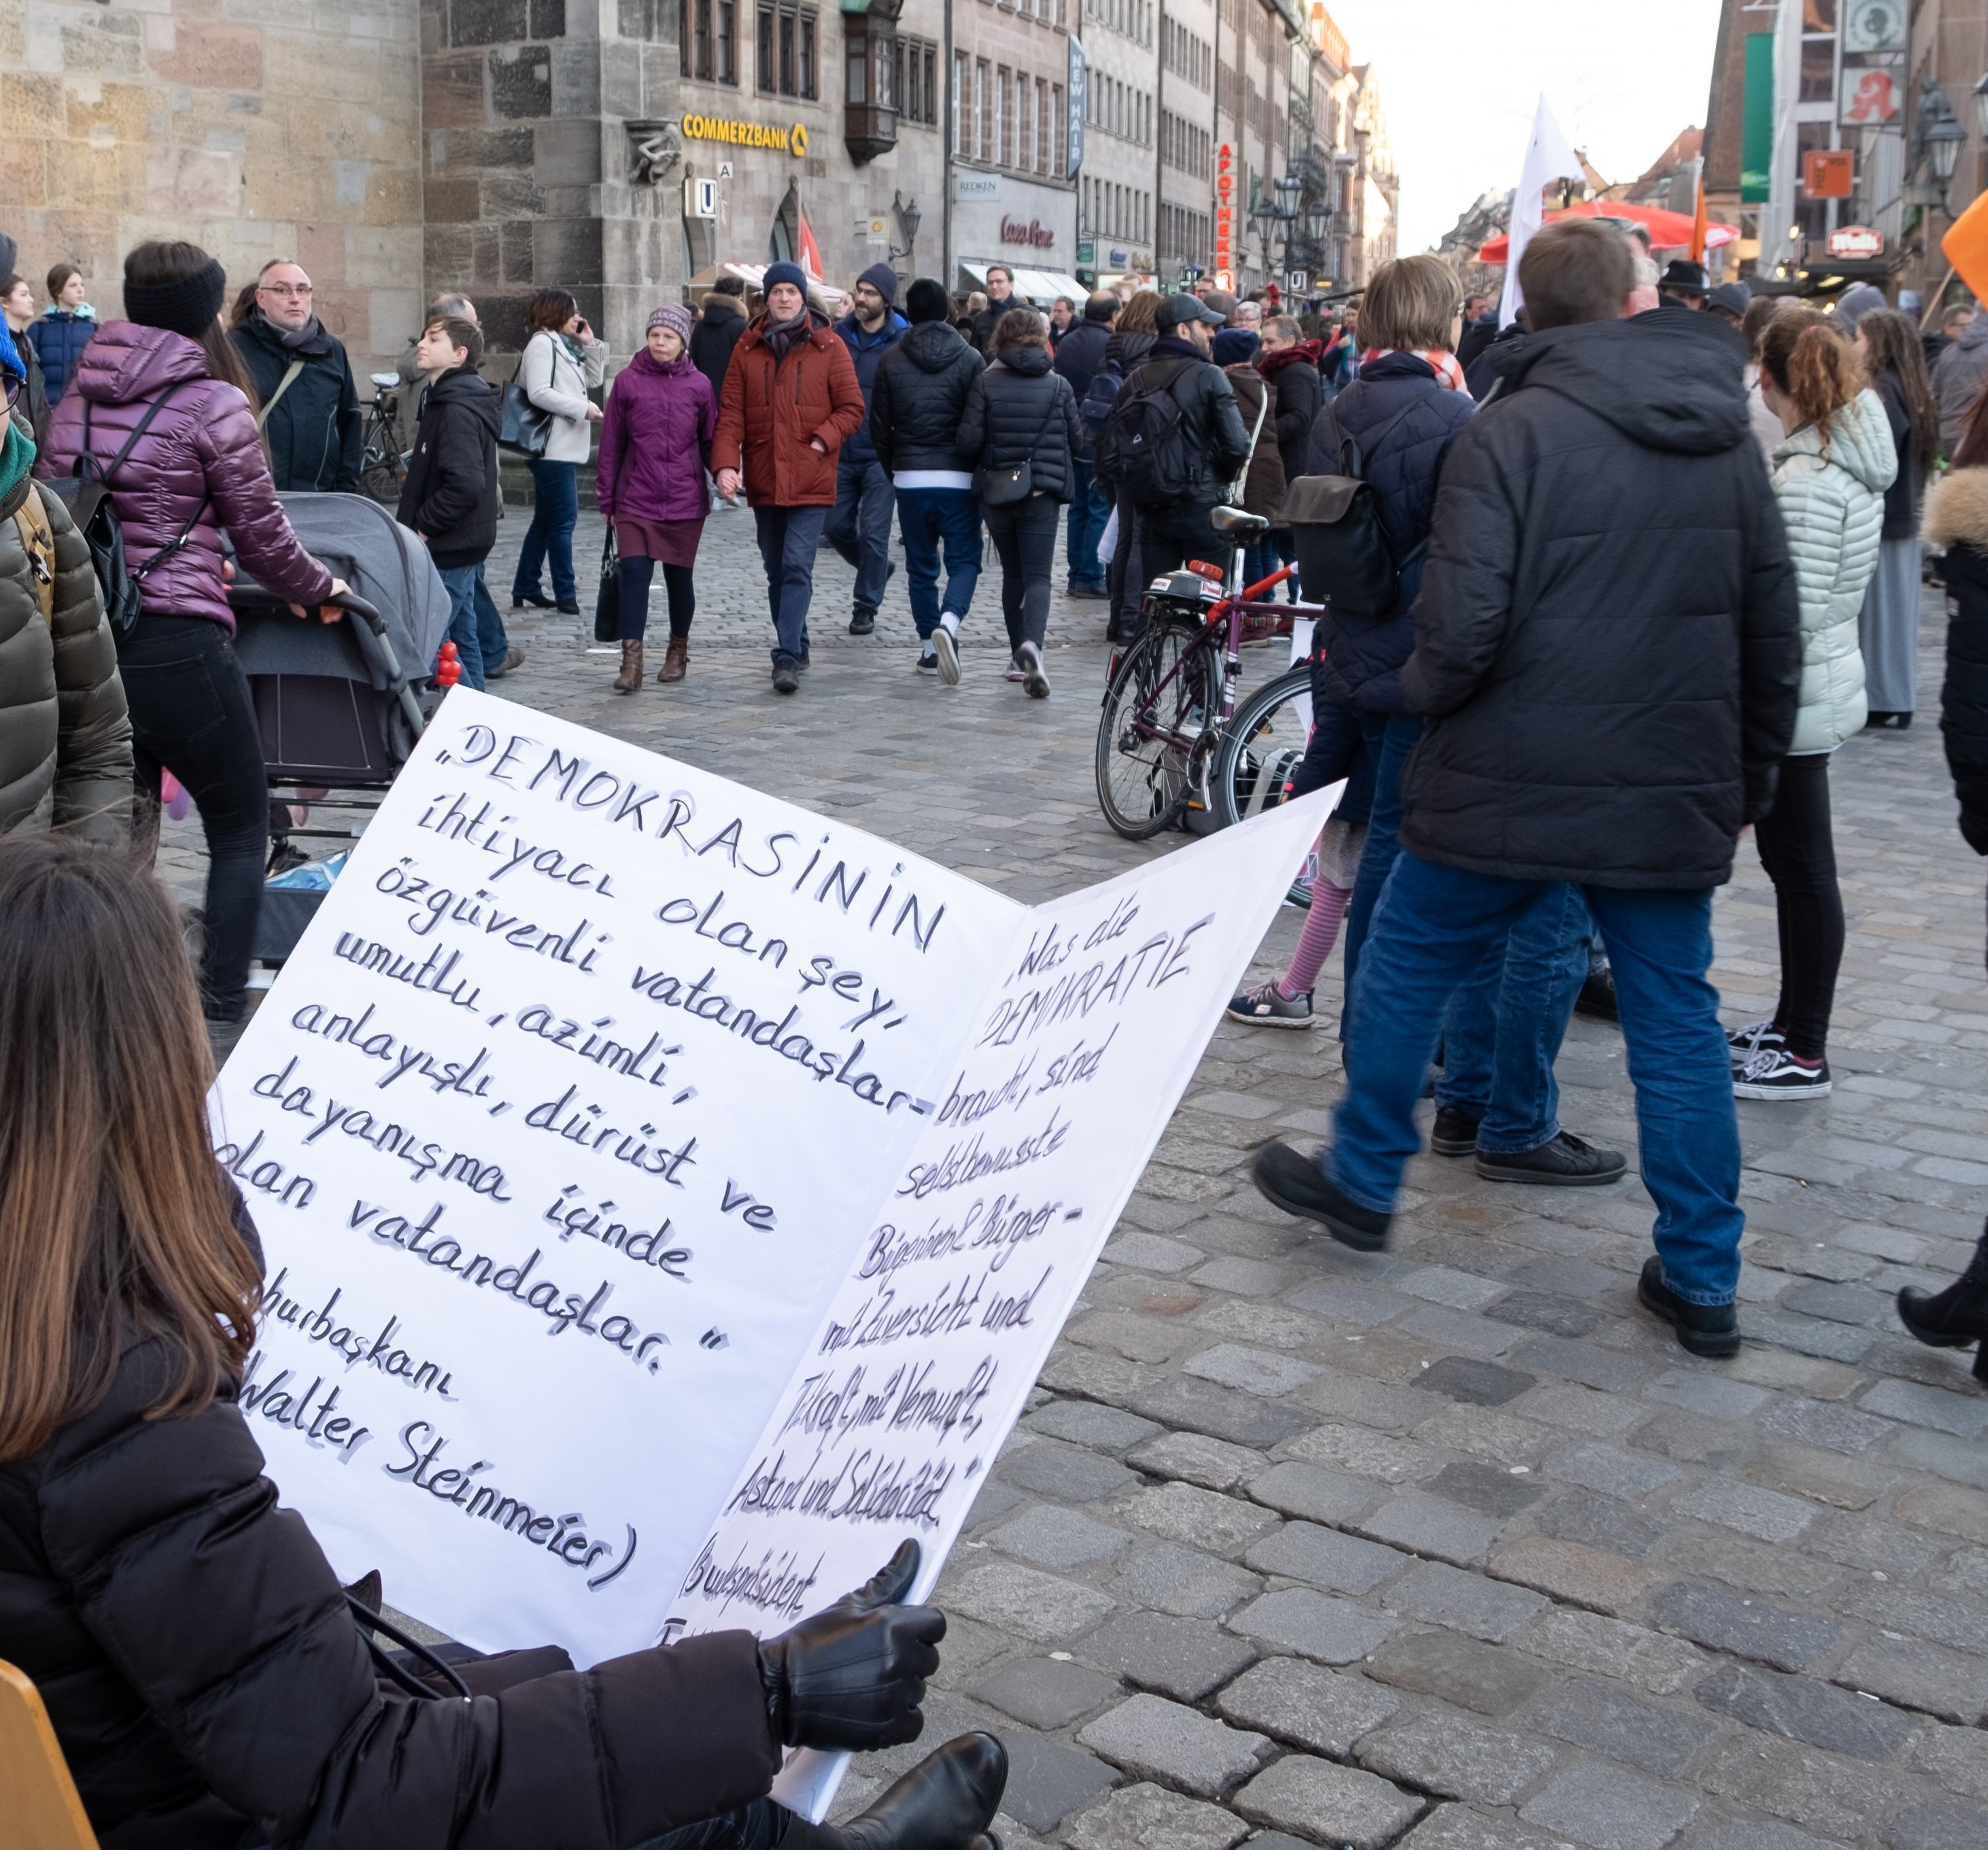 COMMERZBANK
A
U
NEW HAIR
REDKEN
APOTHEKE
„DEMOKRASİNİN
ihtiyacı olan şey,
özgüvenli vatandaşlar-
umutlu, azimli,
anlayışlı, dürüst ve
dayanışma içinde
olan vatandaşlar.“
hurbaşkanı
Walter Steinmeier)
„Was die
DEMOKRATIE
braucht, sind
selbstbewusste
Bürgerinnen & Bürger -
mit Zuversicht und
Tatkraft, mit Vernunft,
Anstand und Solidarität.“
(Bundespräsident